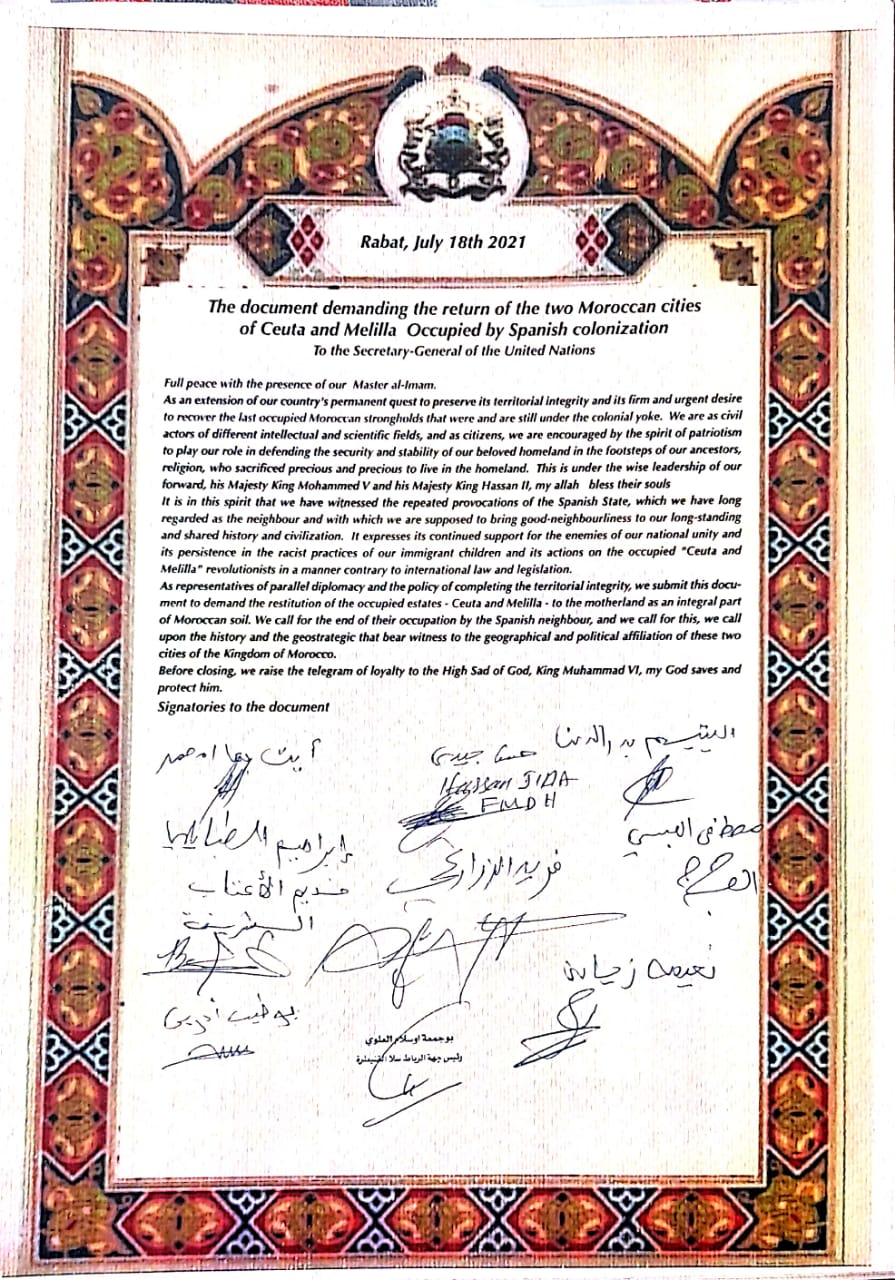 Rabat, July 18th 2021
The document demanding the return of the two Moroccan cities
of Ceuta and Melilla Occupied by Spanish colonization
To the Secretary-General of the United Nations
Full peace with the presence of our Master al-Imam.
As an extension of our country's permanent quest to preserve its territorial integrity and its firm and urgent desire
to recover the last occupied Moroccan strongholds that were and are still under the colonial yoke. We are as civil
actors of different intellectual and scientific fields, and as citizens, we are encouraged by the spirit of patriotism
to play our role in defending the security and stability of our beloved homeland in the footsteps of our ancestors,
religion, who sacrificed precious and precious to live in the homeland. This is under the wise leadership of our
forward, his Majesty King Mohammed V and his Majesty King Hassan II, my allah bless their souls
It is in this spirit that we have witnessed the repeated provocations of the Spanish State, which we have long
regarded as the neighbour and with which we are supposed to bring good-neighbourliness to our long-standing
and shared history and civilization. It expresses its continued support for the enemies of our national unity and
its persistence in the racist practices of our immigrant children and its actions on the occupied "Ceuta and
Melilla" revolutionists in a manner contrary to international law and legislation.
As representatives of parallel diplomacy and the policy of completing the territorial integrity, we submit this docu-
ment to demand the restitution of the occupied estates - Ceuta and Melilla - to the motherland as an integral part
of Moroccan soil. We call for the end of their occupation by the Spanish neighbour, and we call for this, we call
upon the history and the geostrategic that bear witness to the geographical and political affiliation of these two
cities of the Kingdom of Morocco.
Before closing, we raise the telegram of loyalty to the High Sad of God, King Muhammad VI, my God saves and
protect him.
Signatories to the document
Hassan JIDA
FMDH
إبراهيم
خديم الأعتاب
الشريفة
مصطفى
نعيمة
بوجمعة اوسلام العلوي
رئيس جهة الرباط سلا القنيطرة